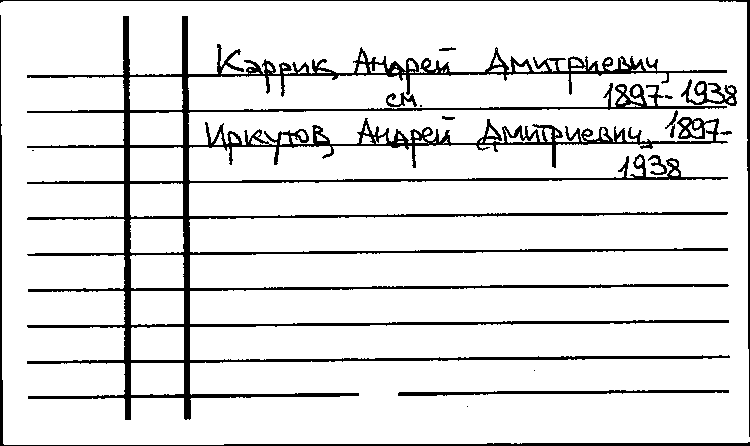 Кэррик, Андрей Дмитриевич,
см. 1897-1938
Иркутов, Андрей Дмитриевич, 1897-
1938